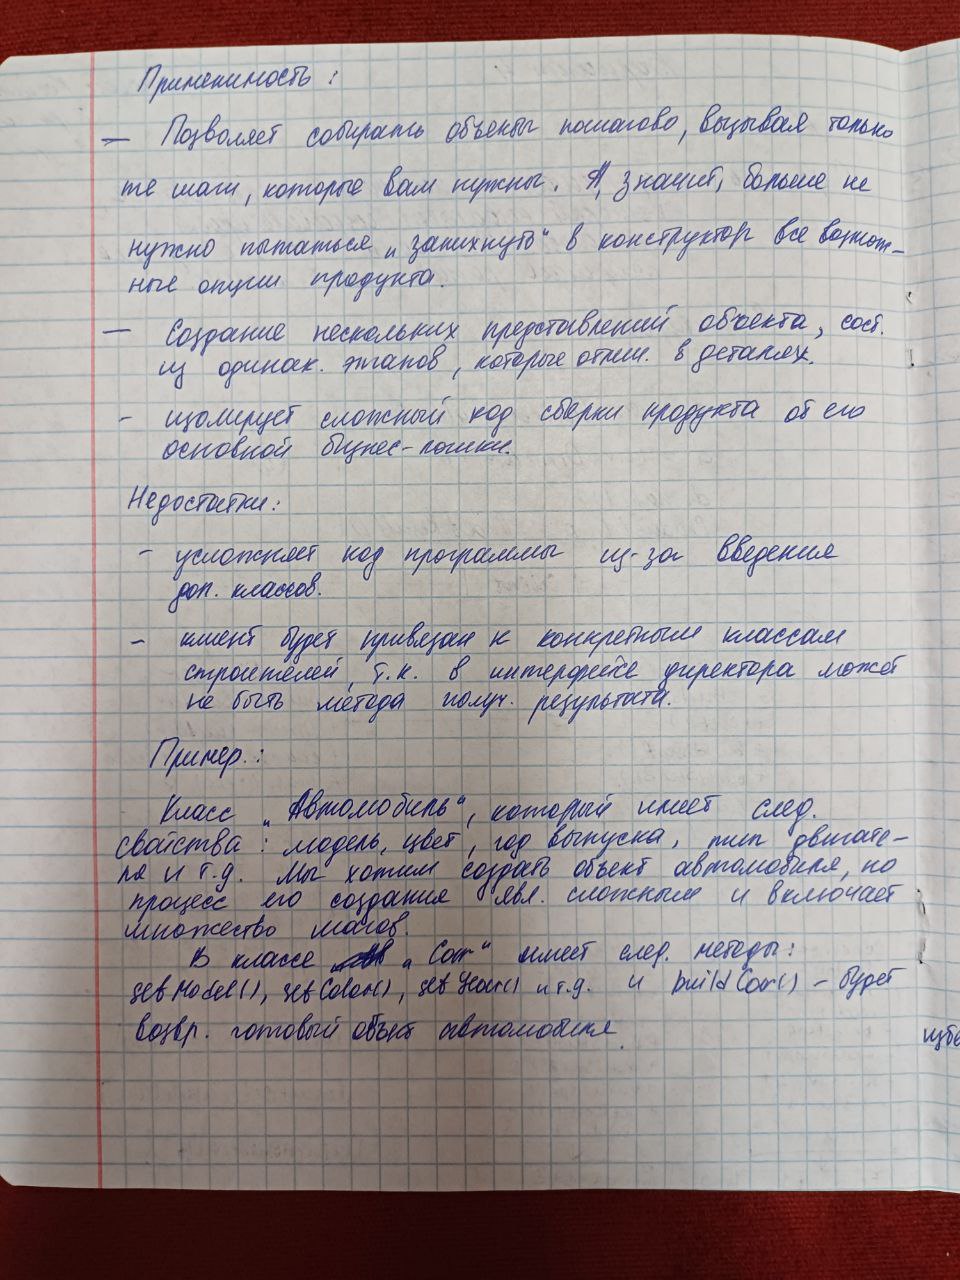 Применимость:
— Позволяет собирать объекты пошагово, вызывая только
те шаги, которые вам нужны. А, значит, больше не
нужно пытаться „запихнуть“ в конструктор все возмож-
ные опции продукта.
— Создание нескольких представлений объекта, сост.
из одинак. этапов, которые отлич. в деталях.
- изолирует сложный код сборки продукта от его
основной бизнес-логики.
Недостатки:
- усложняет код программы из-за введения
доп. классов.
- клиент будет привязан к конкретным классам
строителей, т.к. в интерфейсе директора может
не быть метода получ. результата.
Пример:
Класс „Автомобиль“, который имеет след.
свойства: модель, цвет, год выпуска, тип двигате-
ля и т.д. Мы хотим создать объект автомобиля, но
процесс его создания явл. сложным и включает
множество шагов.
В классе „Car“ имеет след. методы:
setModel(), setColor(), setYear() и т.д. и buildCar() - будет
возвр. готовый объект автомобиля